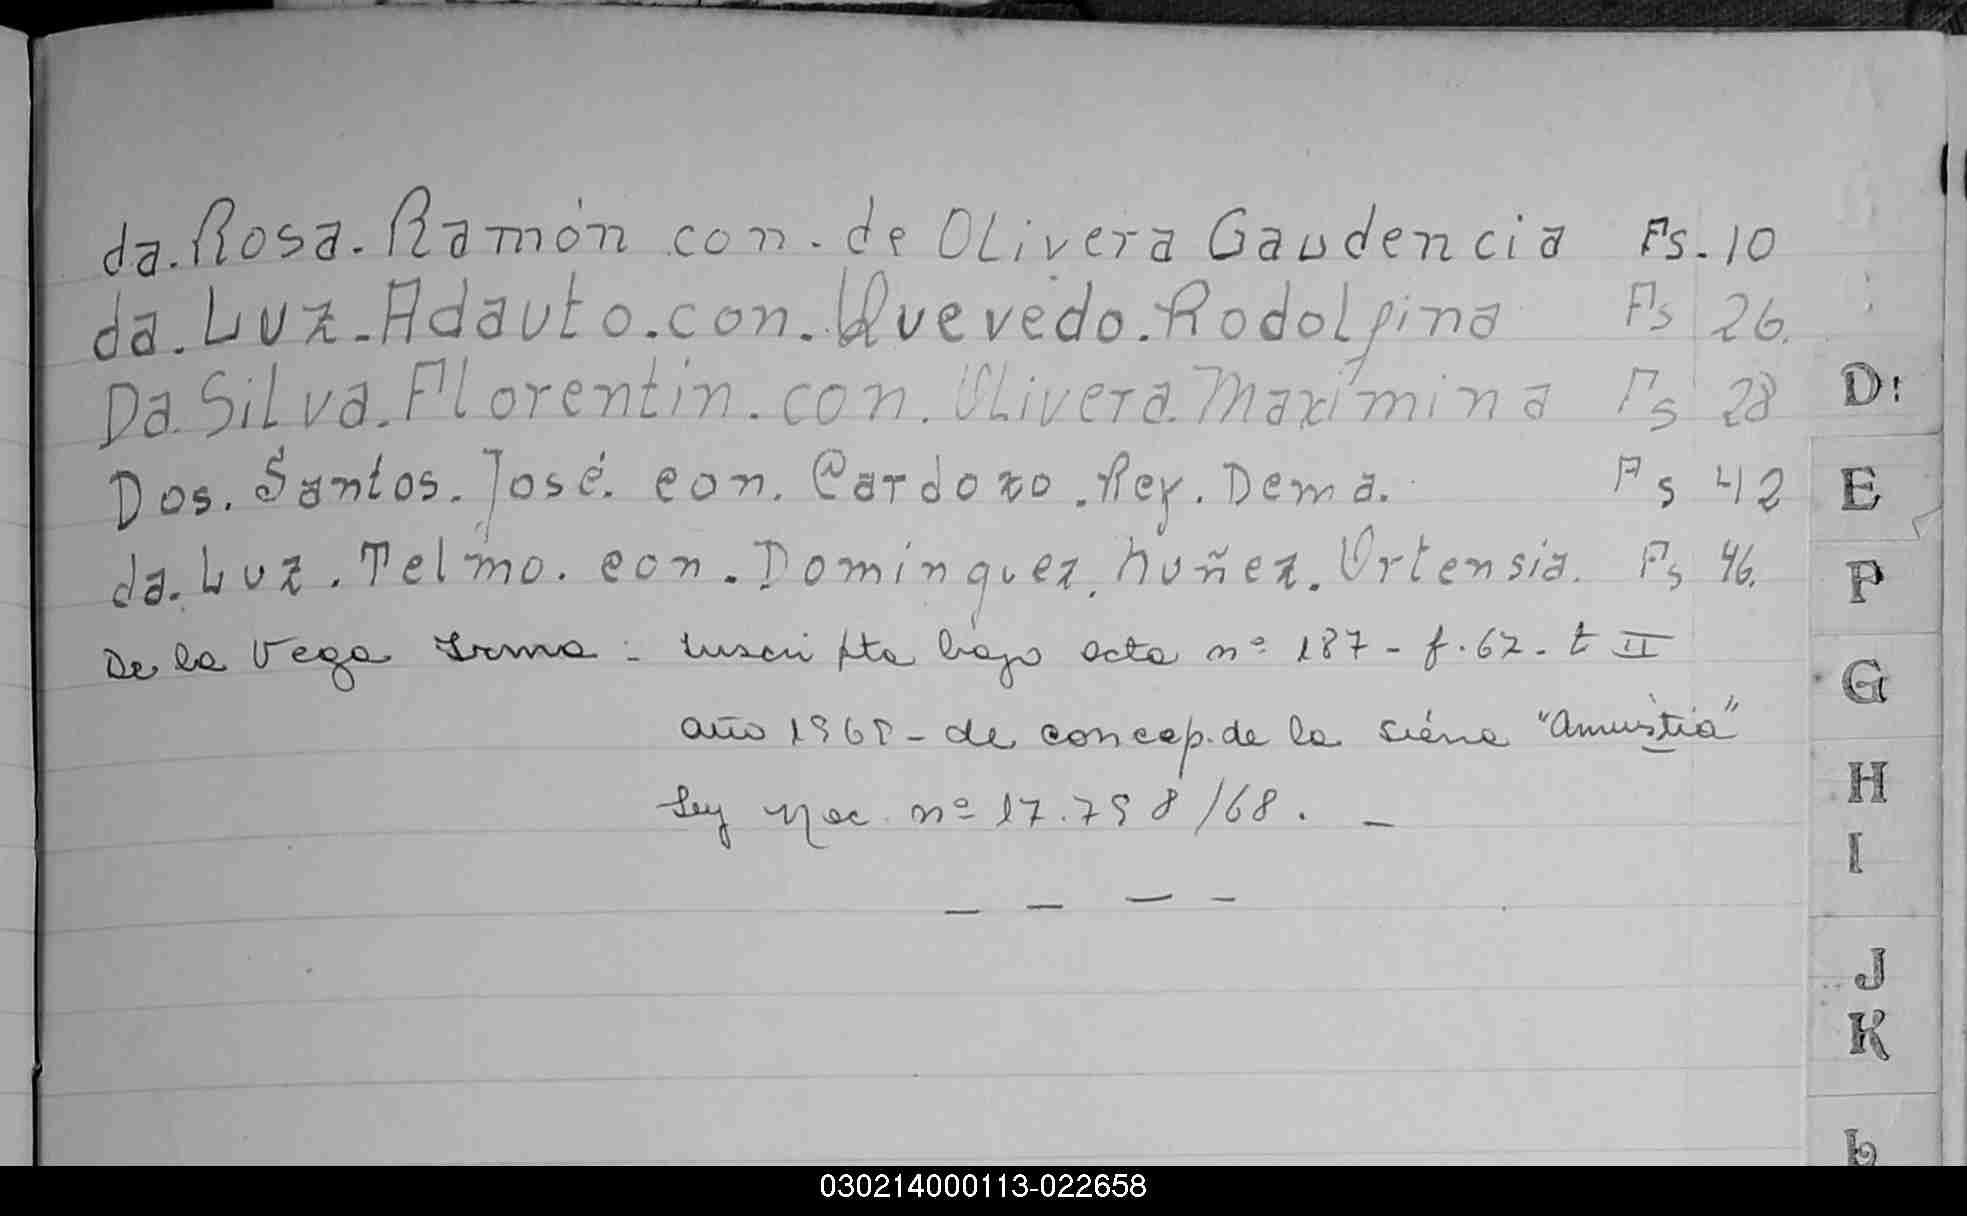 da. Rosa. Ramón con. de Olivera Gaudencia Fs. 10
da. Luz. Adauto. con. Quevedo. Rodolfina Fs 26.
Da Silva. Florentin. con. Olivera. Maximina Fs 28
Dos. Santos. José. con. Cardozo. Rey. Dema. Fs 42
da. Luz. Telmo. con. Dominguez. Nuñez. Ortensia. Fs 46.
De la Vega Irma: Inscripta bajo acta nº 187 - f. 62 - t II
año 1968 - de concep. de la "Amnistia"
Ley Nac. nº 17.798/68. -
- - - -
D:
E
F
G
H
I
J
K
L
030214000113-022658